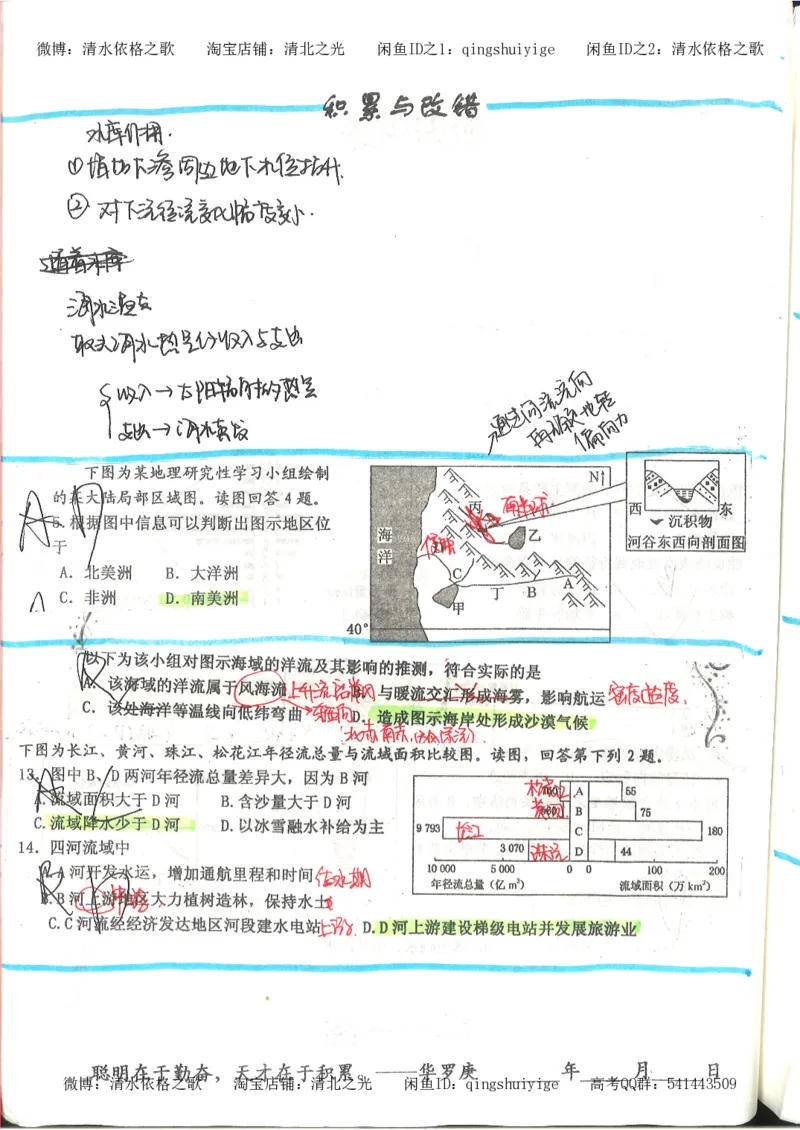 微博：清水依格之歌 淘宝店铺：清北之光 闲鱼ID之1：qingshuiyige 闲鱼ID之2：清水依格之歌
积累与改错
水库作用.
①增加下渗周边地下水位抬升.
② 对下流径流变化幅度变小.
湖水温度
取决湖水热量的收入与支出
收入→太阳辐射的热量
支出→湖水蒸发
通过河流流向
再服从地转
偏向力
下图为某地理研究性学习小组绘制
的某大陆局部区域图。读图回答4题。
根据图中信息可以判断出图示地区位
于
A. 北美洲 B. 大洋洲
C. 非洲 D. 南美洲
海
洋
N
丙
乙
C
甲
丁
B
A
40°
侵蚀
西 东
沉积物
河谷东西向剖面图
以下为该小组对图示海域的洋流及其影响的推测，符合实际的是
A. 该海域的洋流属于风海流 上升流 B. 与暖流交汇形成海雾，影响航运
C. 该处海洋等温线向低纬弯曲 D. 造成图示海岸处形成沙漠气候
下图为长江、黄河、珠江、松花江年径流总量与流域面积比较图。读图，回答第下列2题。
13. 图中B、D两河年径流总量差异大，因为B河
A. 流域面积大于D河 B.含沙量大于D河
C.流域降水少于D河 D.以冰雪融水补给为主
14. 四河流域中
A.A河开发水运，增加通航里程和时间 结冰期
B.B河上游地区大力植树造林，保持水土
C.C河流经经济发达地区河段建水电站 上游 D.D河上游建设梯级电站并发展旅游业
A 55
黄河 B 75
9 793 长江 C 180
3 070 珠江 D 44
10 000 5 000 0 0 100 200
年径流总量（亿m³） 流域面积（万km²）
聪明在于勤奋，天才在于积累。——华罗庚 年 月 日
微博：清水依格之歌 淘宝店铺：清北之光 闲鱼ID：qingshuiyige 高考QQ群：541443509